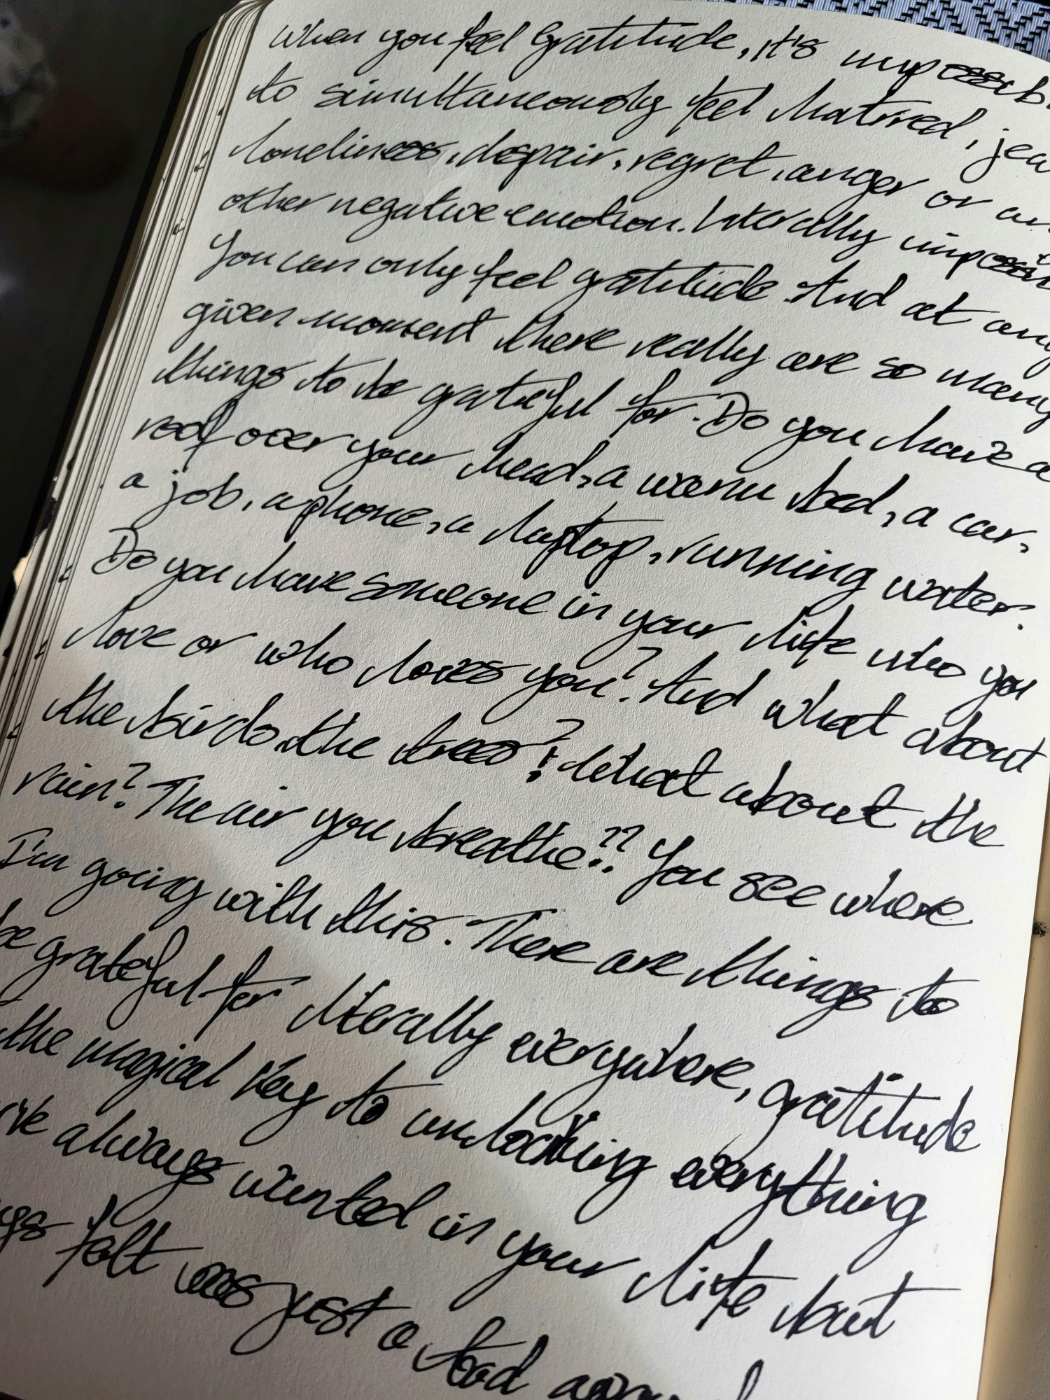 When you feel Gratitude, it's impossib
to simultaneously feel hatred, jea
loneliness, despair, regret, anger or an
other negative emotion. Literally impossi
You can only feel gratitude. And at any
given moment there really are so many
things to be grateful for. Do you have a
roof over your head, a warm bed, a car,
a job, a phone, a laptop, running water?
Do you have someone in your life who you
love or who loves you? And what about
the birds, the trees?! What about the
rain? The air you breathe?? You see where
I'm going with this. There are things to
be grateful for literally everywhere, gratitude
the magical key to unlocking everything
've always wanted in your life but
ys felt was just a tad